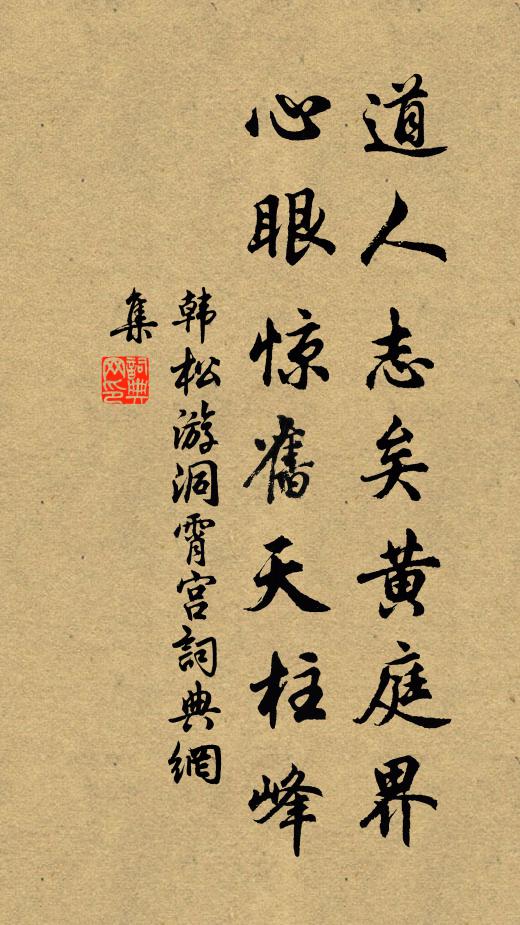 道人志矣黄庭界
心眼惊旧天柱峰
韩松游洞霄宫詞典網
集
詞典网印